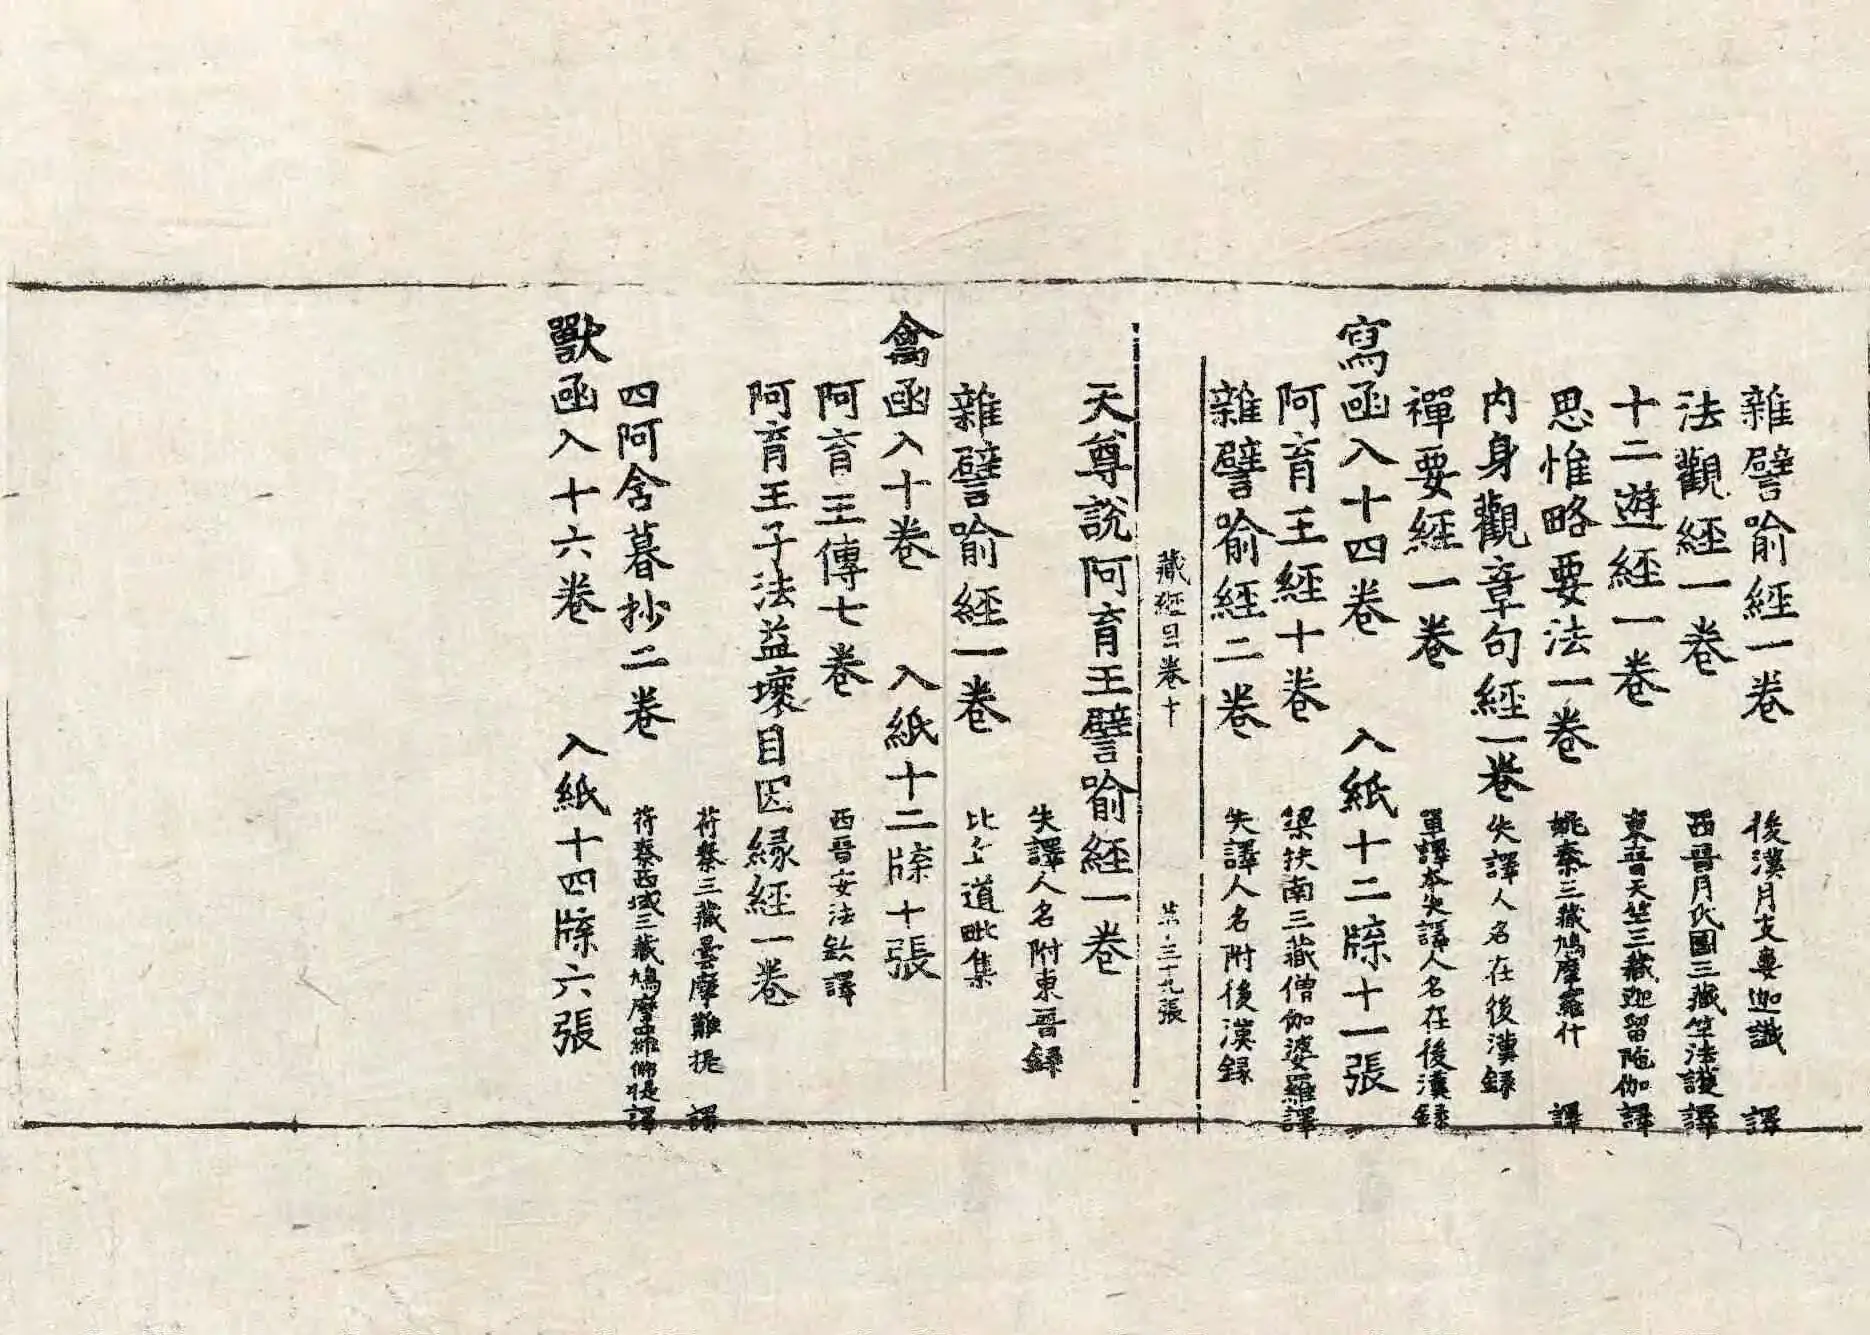 雜譬喻經一卷 後漢月支婁迦讖 譯
法觀經一卷 西晉月氏國三藏竺法護譯
十二遊經一卷 東晉天竺三藏迦留陁伽譯
思惟略要法一卷 姚秦三藏鳩摩羅什 譯
内身觀章句經一卷 失譯人名在後漢録
禪要經一卷 單譯本失譯人名在後漢録
寫函入十四卷 入紙十二牒十一張
阿育王經十卷 梁扶南三藏僧伽婆羅譯
雜譬喻經二卷 失譯人名附後漢録
藏經目卷十 三十九張
天尊說阿育王譬喻經一卷
失譯人名附東晉録
雜譬喻經一卷 比丘道毗集
禽函入十卷 入紙十二牒十張
阿育王傳七卷 西晉安法欽譯
阿育王子法益壞目因縁經一卷
符秦三藏曇摩難提 譯
四阿含暮抄二卷 符秦西域三藏鳩摩羅佛提譯
獸函入十六卷 入紙十四牒六張